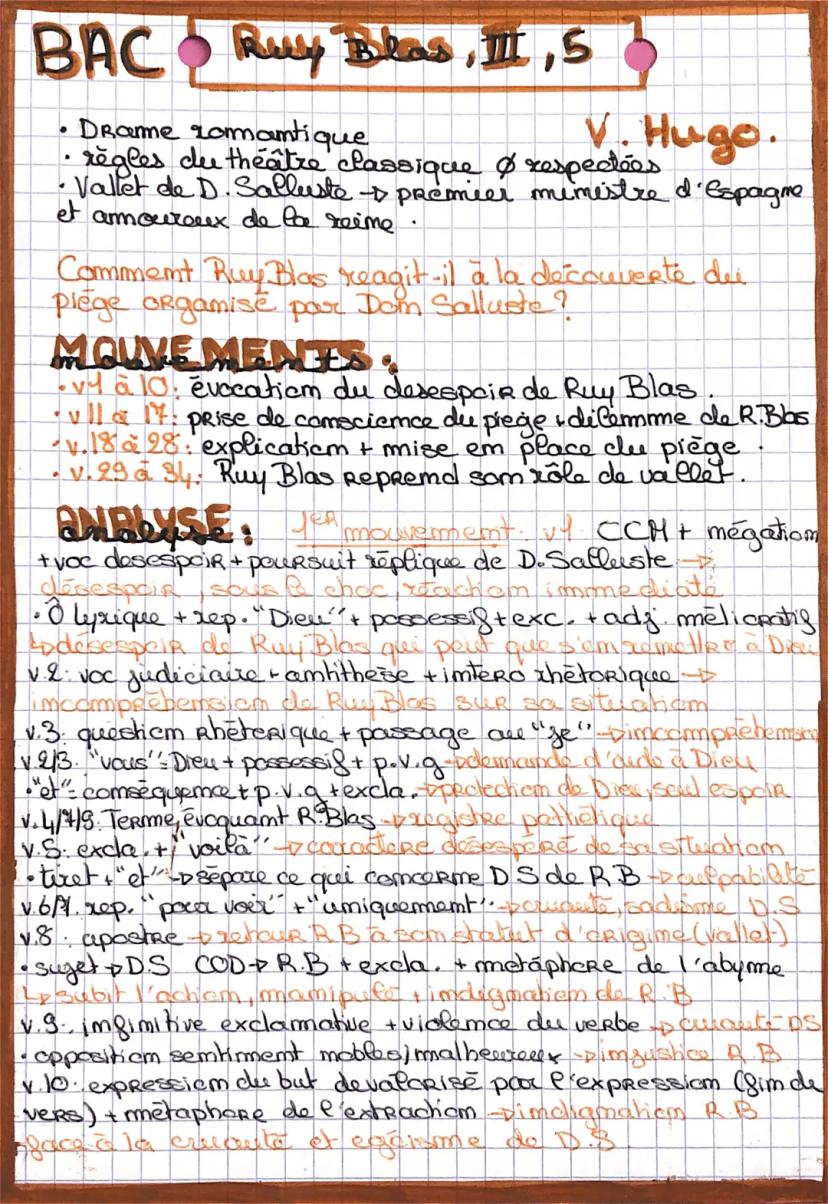 BAC Ruy Blas, III, 5
V. Hugo.
• Drame romantique
• règles du théâtre classique Ø respectées
• Vallet de D. Salluste → premier ministre d'Espagne
et amoureux de la reine.
Comment Ruy Blas reagit-il à la découverte du
piège organisé par Dom Salluste?
MOUVEMENTS:
• v1 à 10: évocation du desespoir de Ruy Blas.
• v11 à 17: prise de conscience du piege + dilemme de R.Blas
• v.18 à 28: explication + mise en place du piège.
• v.29 à 34: Ruy Blas reprend son rôle de vallet.
ANALYSE: 1er mouvement: v1 CCM + négation
+ voc desespoir + poursuit réplique de D. Salluste →
désespoir, sous le choc, réaction immediate
• Ô lyrique + rep. "Dieu" + possessif + exc. + adj. mélioratif
↳ désespoir de Ruy Blas qui peut que s'en remettre à Dieu
v.2: voc judiciaire + antithèse + intero rhétorique →
incompréhension de Ruy Blas sur sa situation
v.3. question rhéterique + passage au "je" → incompréhension
v.2/3. "vous" = Dieu + possessif + p.v.g → demande d'aide à Dieu
• "et" = conséquence + p.v.g + excla. → protection de Dieu, seul espoir
v.4/7/9. Terme évoquant R.Blas → registre pathétique
v.5. excla. + "voilà" → caractère désespéré de sa situation
• tiret + "et" → sépare ce qui concerne DS de RB → culpabilité
v.6/7. rep. "pour voir" + "uniquement" → cruauté, sadisme D.S
v.8. apostre → retour RB à son statut d'origine (vallet)
• sujet → D.S COD → R.B + excla. + metáphore de l'abyme
↳ subit l'action, manipulé + indignation de R.B
v.9. infinitive exclamative + violence du verbe → cruauté DS
• opposition sentiment nobles/malheureux → injustice R.B
v.10. expression du but devalorisé par l'expression (fin de
vers) + métaphore de l'extraction → indignation R.B
face à la cruauté et egoïsme de D.S.